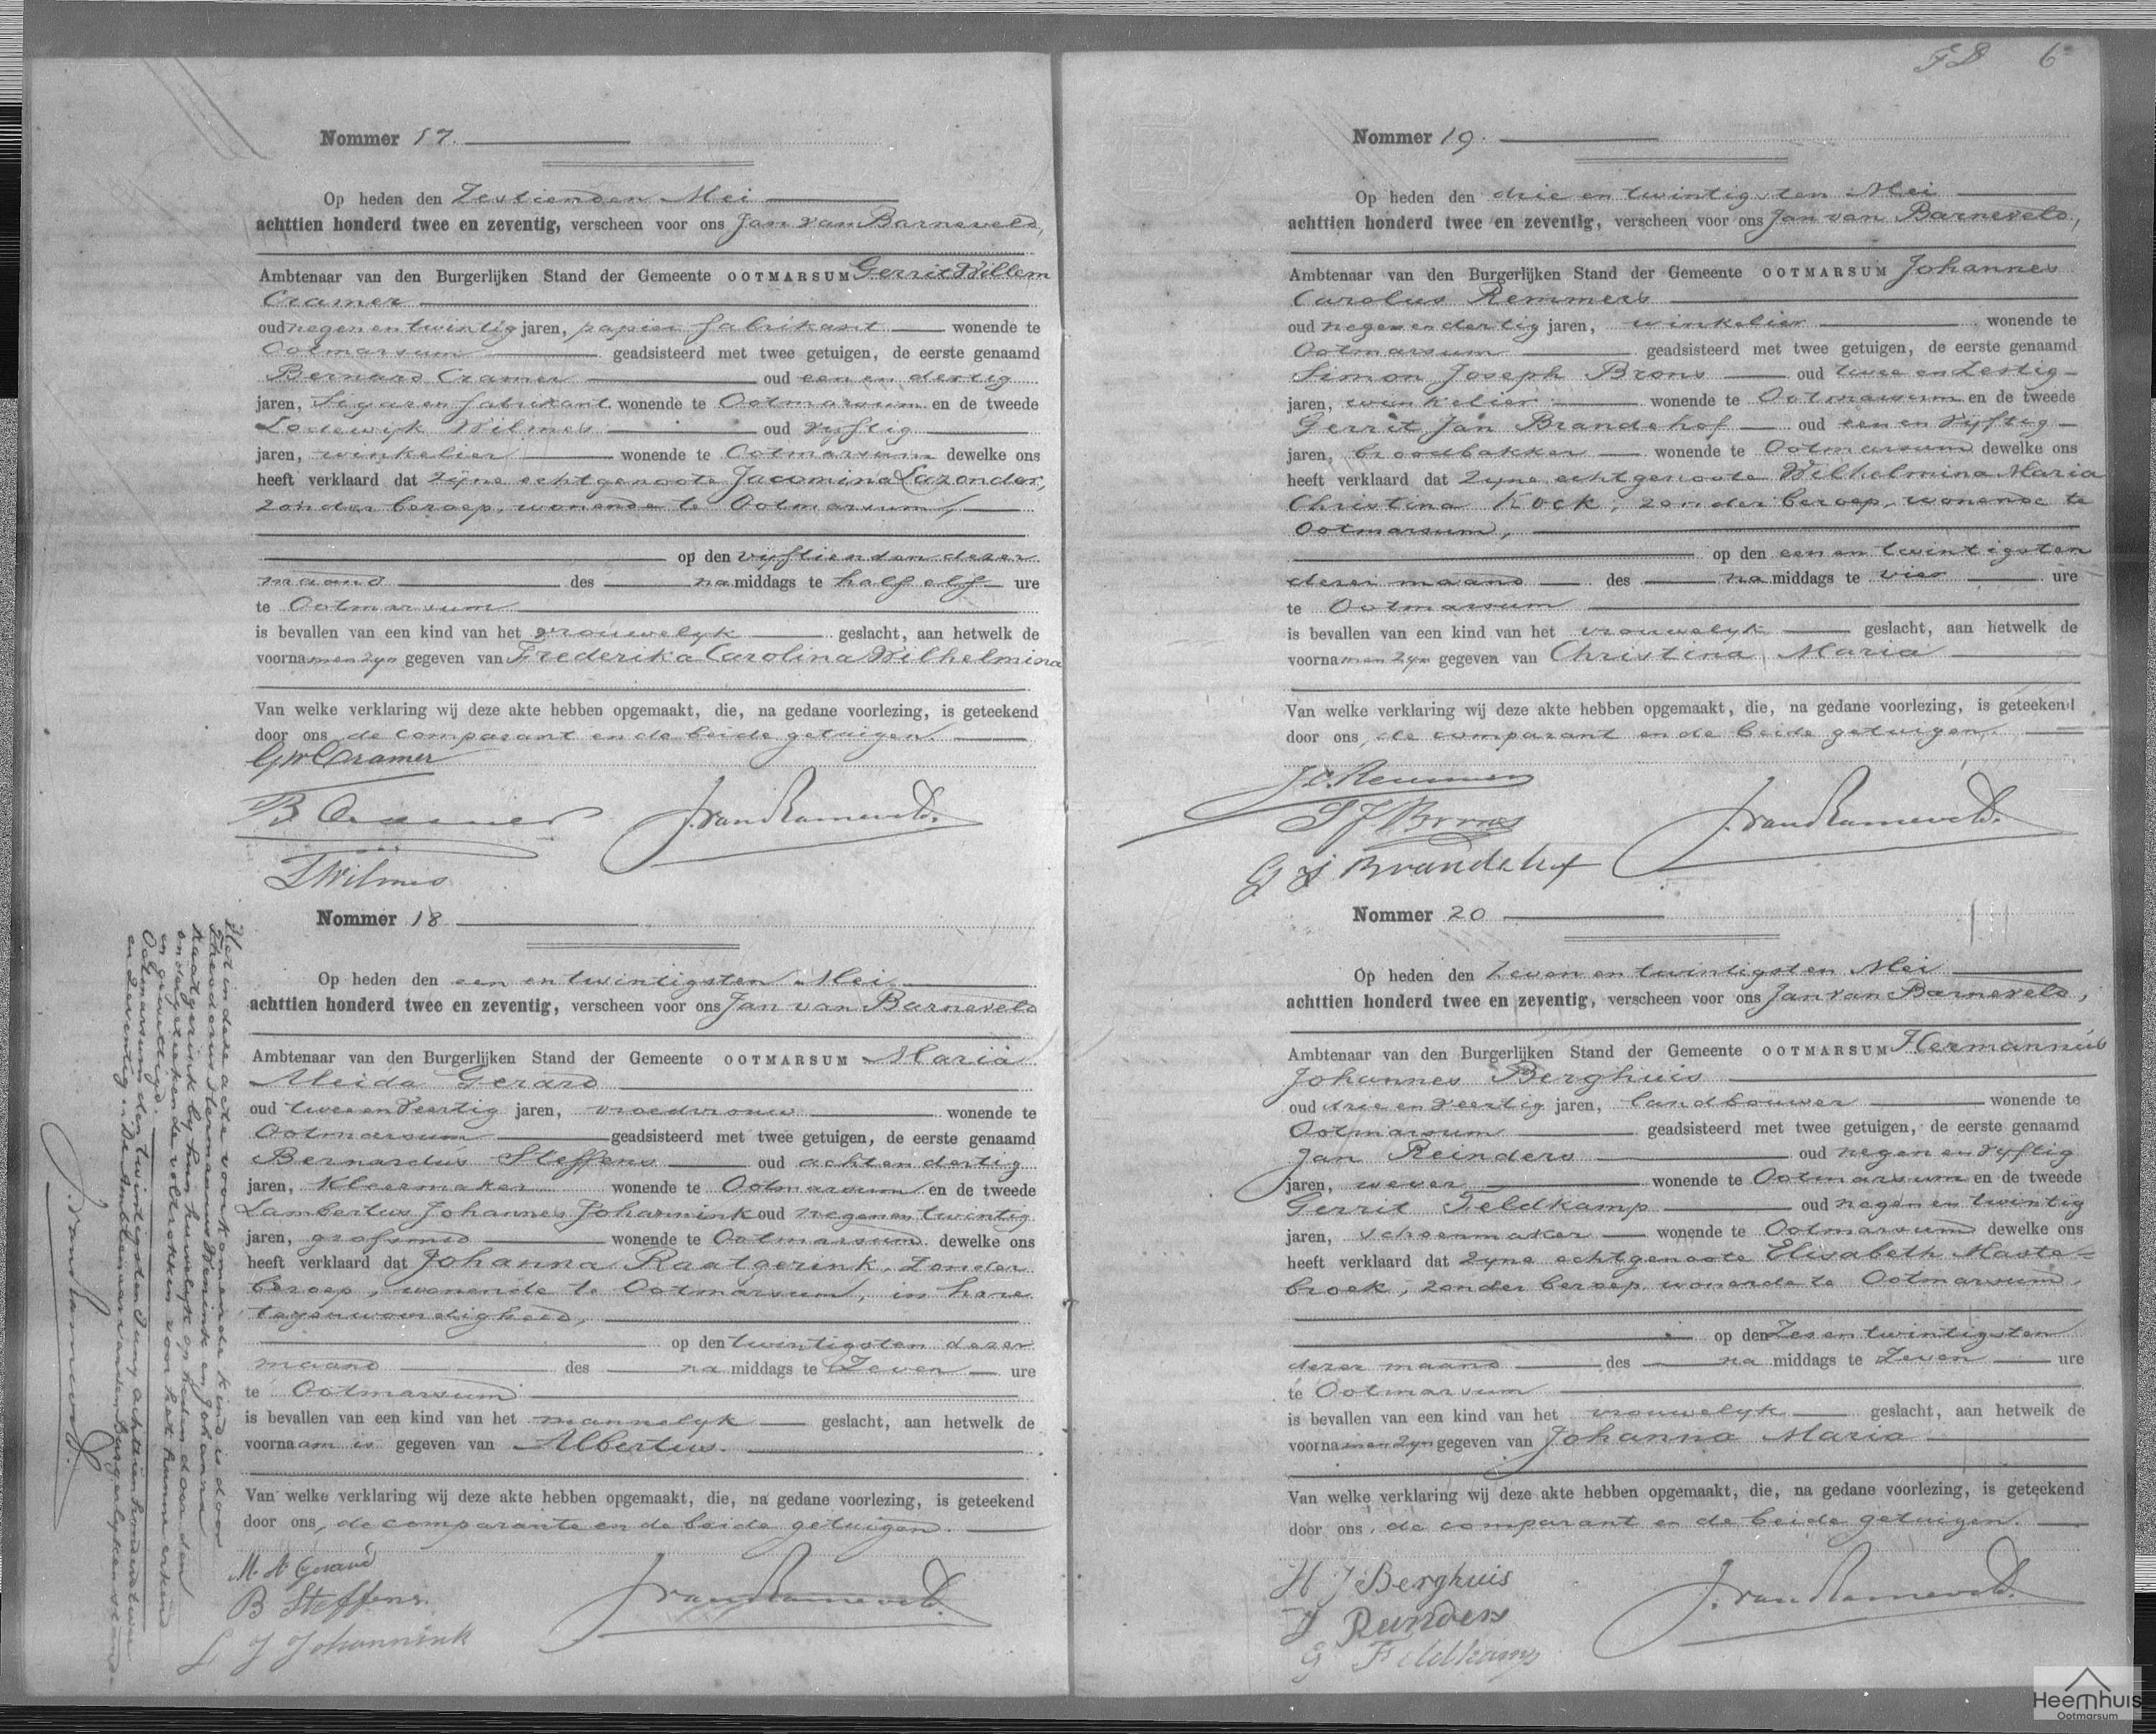 Nommer 17.
Op heden den Zestienden Mei
achttien honderd twee en zeventig, verscheen voor ons Jan van Barneveld,
Ambtenaar van den Burgerlijken Stand der Gemeente OOTMARSUM Gerrit Willem
Cramer
oud negen en twintig jaren, papier fabrikant wonende te
Ootmarsum geadsisteerd met twee getuigen, de eerste genaamd
Bernard Cramer oud een en dertig
jaren, Sigaren fabrikant wonende te Ootmarsum en de tweede
Lodewijk Wilmes oud vijftig
jaren, winkelier wonende te Ootmarsum dewelke ons
heeft verklaard dat zijne echtgenoote Jacomina Lazonder,
zonder beroep, wonende te Ootmarsum,
op den vijftienden dezer
maand des na middags te half elf ure
te Ootmarsum
is bevallen van een kind van het vrouwelyk geslacht, aan hetwelk de
voornamen zyn gegeven van Frederika Carolina Wilhelmina
Van welke verklaring wij deze akte hebben opgemaakt, die, na gedane voorlezing, is geteekend
door ons, de comparant en de beide getuigen.
GW Cramer
B Cramer J. van Barneveld.
L Wilmes
Nommer 18
Op heden den een en twintigsten Mei
achttien honderd twee en zeventig, verscheen voor ons Jan van Barneveld
Ambtenaar van den Burgerlijken Stand der Gemeente OOTMARSUM Maria
Aleida Gerard
oud twee en veertig jaren, vroedvrouw wonende te
Ootmarsum geadsisteerd met twee getuigen, de eerste genaamd
Bernardus Steffens oud acht en dertig
jaren, Kleermaker wonende te Ootmarsum en de tweede
Lambertus Johannes Johannink oud negen en twintig
jaren, grofsmid wonende te Ootmarsum dewelke ons
heeft verklaard dat Johanna Raatgerink, zonder
beroep, wonende te Ootmarsum, in hare
tegenwoordigheid,
op den twintigsten dezer
maand des na middags te Zeven ure
te Ootmarsum
is bevallen van een kind van het mannelyk geslacht, aan hetwelk de
voornaam is gegeven van Albertus.
Van welke verklaring wij deze akte hebben opgemaakt, die, na gedane voorlezing, is geteekend
door ons, de comparante en de beide getuigen.
M. A Gerard
B Steffens. J. van Barneveld.
L J Johannink
Het in deze acte voorkomende kind is door
Theodorus Hermannus en Johanna
Raatgerink by hun huwelyk op heden door den
ondergeteekende voltrokken voor het hunne erkend
en gewettigd.
Ootmarsum den twintigsten Juny achttien honderd twee
en zeventig. De Ambtenaar van den Burgerlyken stand.
J. van Barneveld.
FD 6
Nommer 19.
Op heden den drie en twintigsten Mei
achttien honderd twee en zeventig, verscheen voor ons Jan van Barneveld,
Ambtenaar van den Burgerlijken Stand der Gemeente OOTMARSUM Johannes
Carolus Remmers
oud negen en dertig jaren, winkelier wonende te
Ootmarsum geadsisteerd met twee getuigen, de eerste genaamd
Simon Joseph Brons oud twee en Zestig
jaren, winkelier wonende te Ootmarsum en de tweede
Gerrit Jan Brandehof oud een en vijftig
jaren, broodbakker wonende te Ootmarsum dewelke ons
heeft verklaard dat zyne echtgenoote Wilhelmina Maria
Christina Kock, zonder beroep, wonende te
Ootmarsum,
op den een en twintigsten
dezer maand des na middags te vier ure
te Ootmarsum
is bevallen van een kind van het vrouwelyk geslacht, aan hetwelk de
voornamen zyn gegeven van Christina Maria
Van welke verklaring wij deze akte hebben opgemaakt, die, na gedane voorlezing, is geteekend
door ons, de comparant en de beide getuigen.
J.C. Remmers
S J Brons J. van Barneveld.
G J Brandehof
Nommer 20
Op heden den Zeven en twintigsten Mei
achttien honderd twee en zeventig, verscheen voor ons Jan van Barneveld,
Ambtenaar van den Burgerlijken Stand der Gemeente OOTMARSUM Hermannus
Johannes Berghuis
oud drie en veertig jaren, landbouwer wonende te
Ootmarsum geadsisteerd met twee getuigen, de eerste genaamd
Jan Reinders oud negen en vyftig
jaren, wever wonende te Ootmarsum en de tweede
Gerrit Feldkamp oud negen en twintig
jaren, schoenmaker wonende te Ootmarsum dewelke ons
heeft verklaard dat zyne echtgenoote Elisabeth Maste=
broek, zonder beroep, wonende te Ootmarsum,
op den Zes en twintigsten
dezer maand des na middags te Zeven ure
te Ootmarsum
is bevallen van een kind van het vrouwelyk geslacht, aan hetwelk de
voornamen zyn gegeven van Johanna Maria
Van welke verklaring wij deze akte hebben opgemaakt, die, na gedane voorlezing, is geteekend
door ons, de comparant en de beide getuigen.
H J Berghuis
J Reinders J. van Barneveld.
G Feldkamp
Heemhuis
Ootmarsum